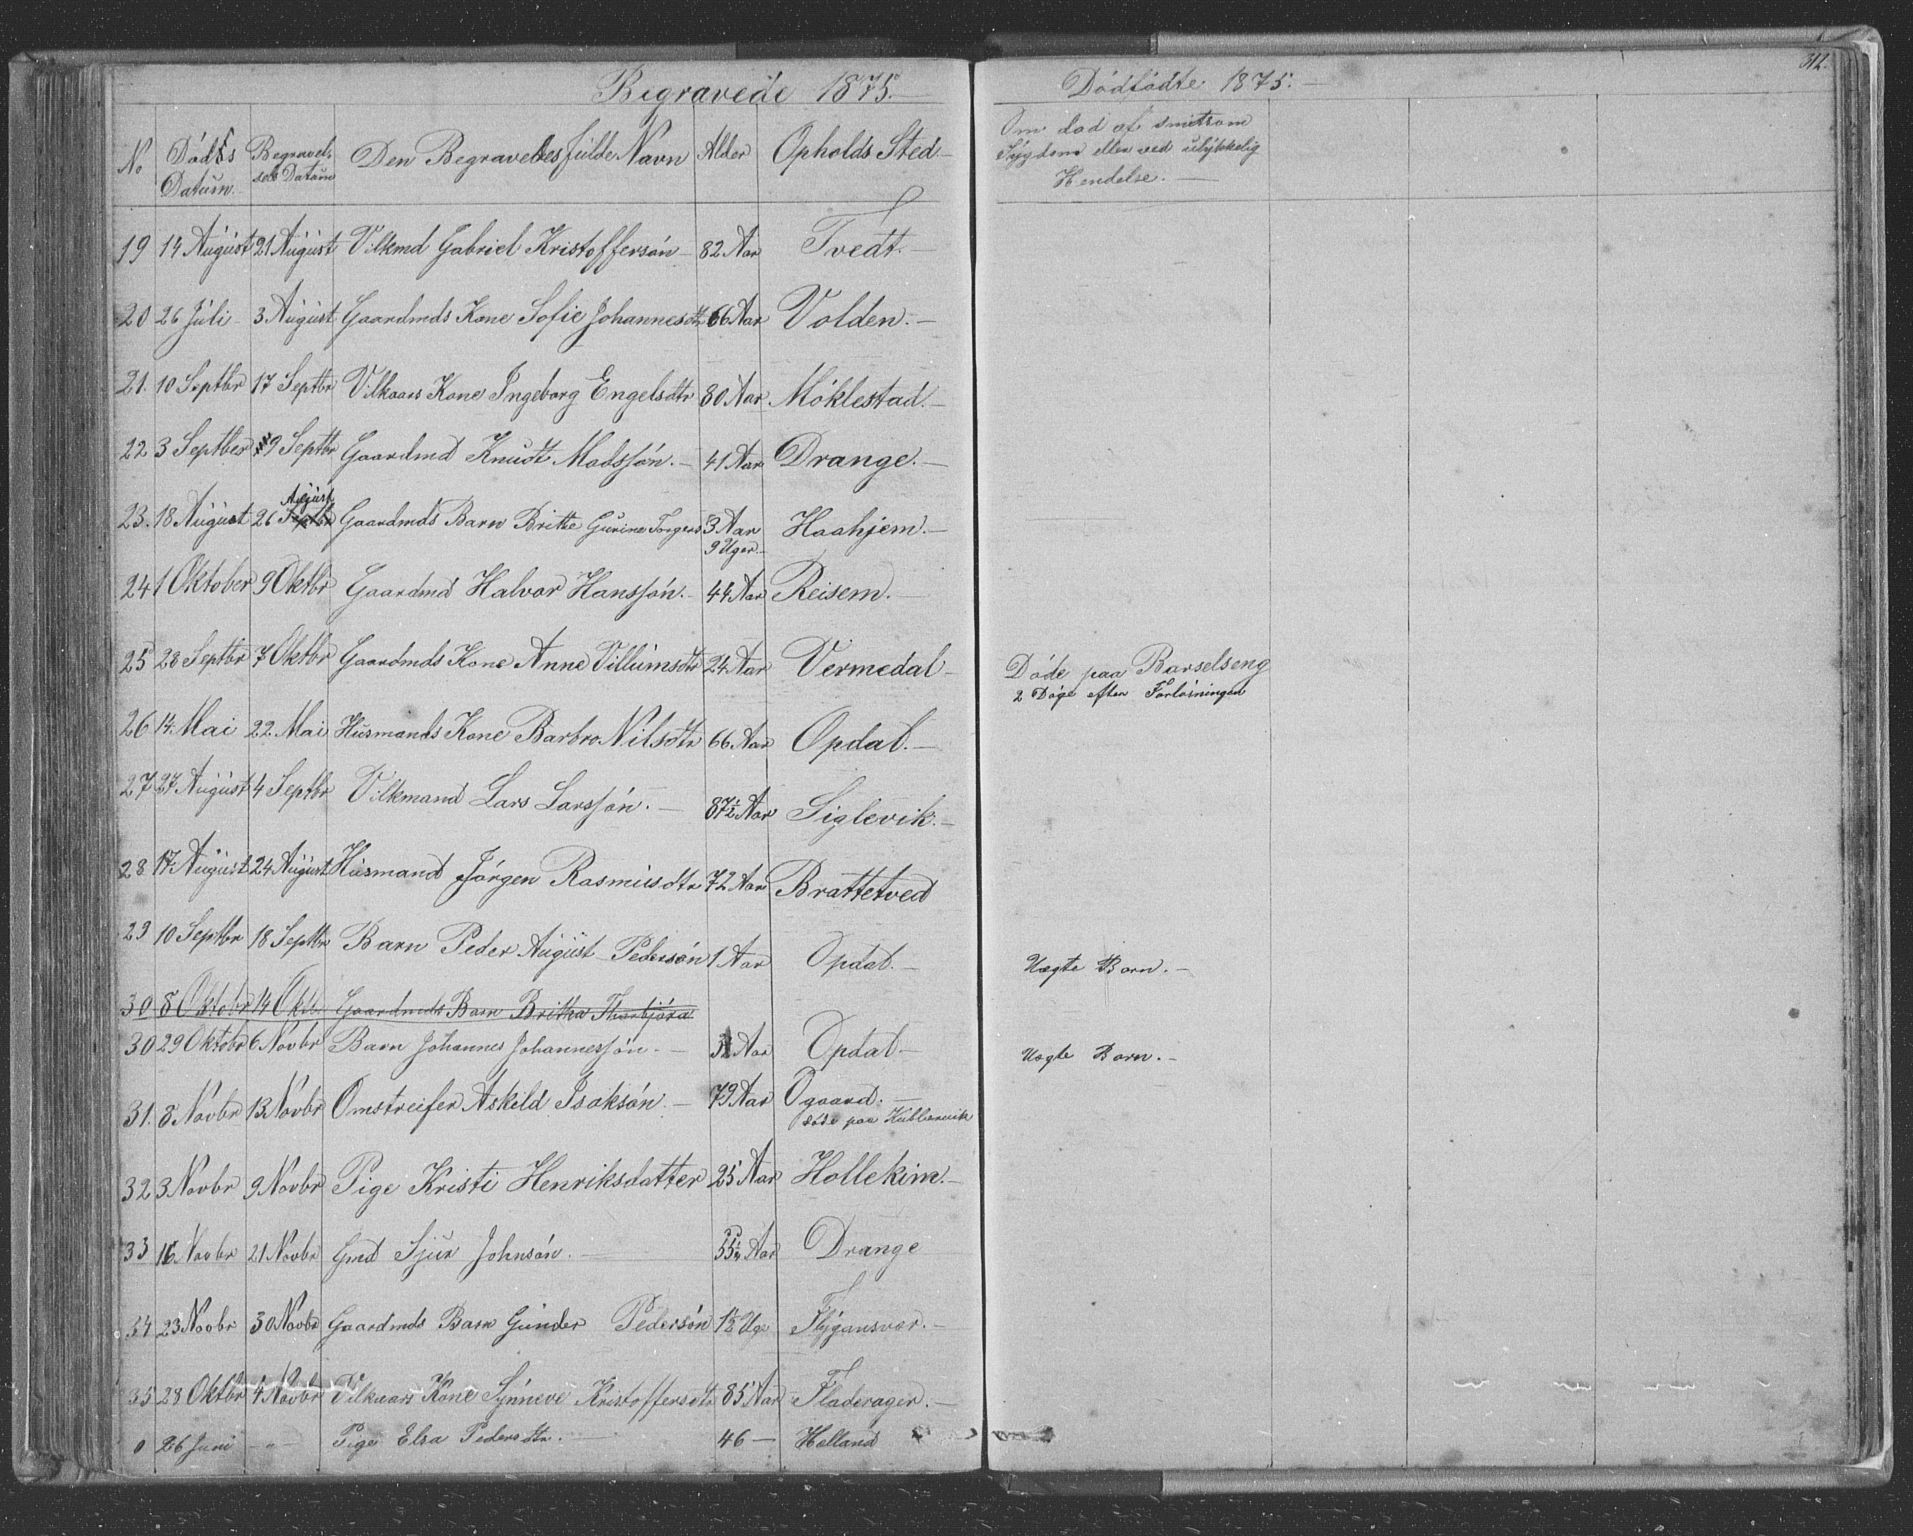 Begravede 1875.
No Döds Datum Begravelses Datum Den Begravedes fulde Navn Alder Opholds Sted
19 14 August 21 August Vilkmd Gabriel Kristoffersön 82 Aar Tvedt.
20 26 Juli 3 August Gaardmds Kone Sofie Johannesdtr 66 Aar Volden.
21. 10 Septbr 17 Septbr Vilkaars Kone Ingeborg Engelsdtr 80 Aar Möklestad.
22 3 Septber 9 Septbr Gaardmd Knudt Madssön. 41 Aar Drange.
August
23. 18 August 26 Septbr Gaardmds Barn Britte Gurine Torgers 3 Aar Haahjem.
9 Uger
24 1 Oktober 9 Oktbr Gaardmd Halvor Hanssön. 44 Aar Reisem.
25 28 Septbr 7 Oktbr Gaardmds Kone Anne Villumsdtr 24 Aar Vermedal
26 14. Mai 22 Mai Husmands Kone Barbro Nilsdtr 66 Aar Opdal.
27 27 August 4 Septbr Vilkmand Lars Larssön. 87½ Aar Siglevik.
28 17 August 24 August Husmand Jörgen Rasmusdtr 72 Aar Brattetved
29 10 Septbr 18 Septbr Barn Peder August Pedersön 1 Aar Opdal.
30 8 Oktobr 14 Oktb Gaardmds Barn Britha Thorbjöra
30 29 Oktobr 6 Novbr Barn Johannes Johannessön. Aar Opdal
31. 8 Novbr 13 Novbr Omstreifer Askild Isaksön. 79 Aar Ogaard.
döde paa Kubbervik
32 3 Novbr 9 Novbr Pige Kristi Henriksdatter 25 Aar Hollekim.
33 16 Novbr 21 Novbr Gmd Sjur Johnsön. 55 Aar Drange
34 23 Novbr 30 Novbr Gaardmds Barn Gunder Pedersön 1½ Uge Flygansvær.
35 28 Oktbr 4 Novbr Vilkaars Kone Synneve Kristoffersdtr 85 Aar Fladerager.
0 26 Juni -"- Pige Elsa Pedersdtr. 46 — Holland
312.
Dödfödte 1875.
Om död af smitsom
Sygdom eller ved ulykkelig
Hendelse.
Döde paa Barselseng
2 Döge efter Forlösningen
Uægte Barn.
Uægte Barn.